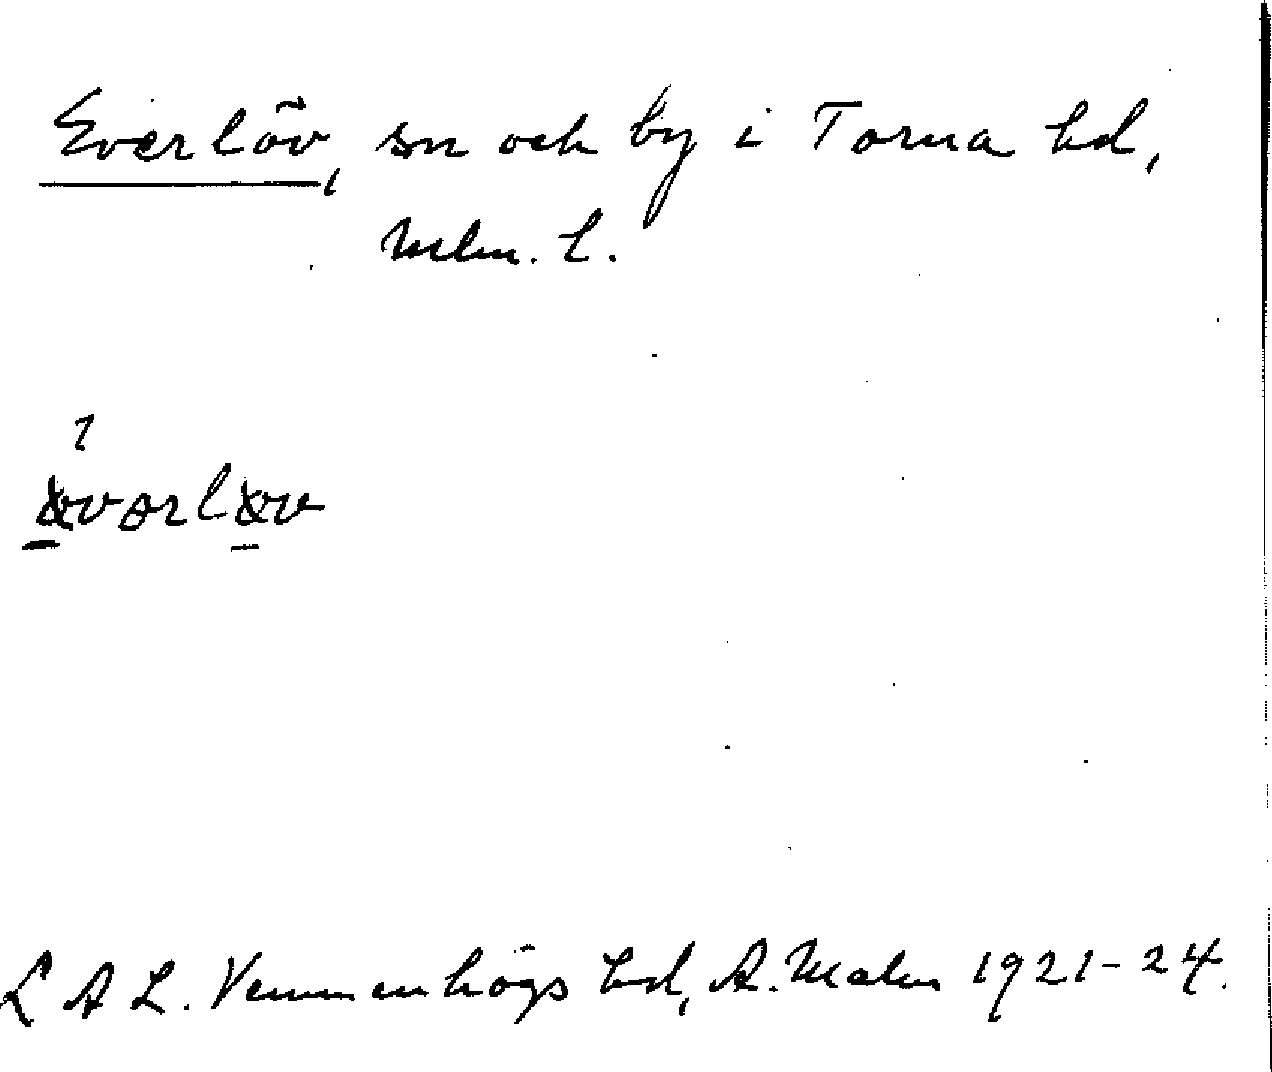 Everlöv, sn och by i Torna hd,
Mlm. l.
L A L. Vemmenhögs hd, A. Malm 1921-24.